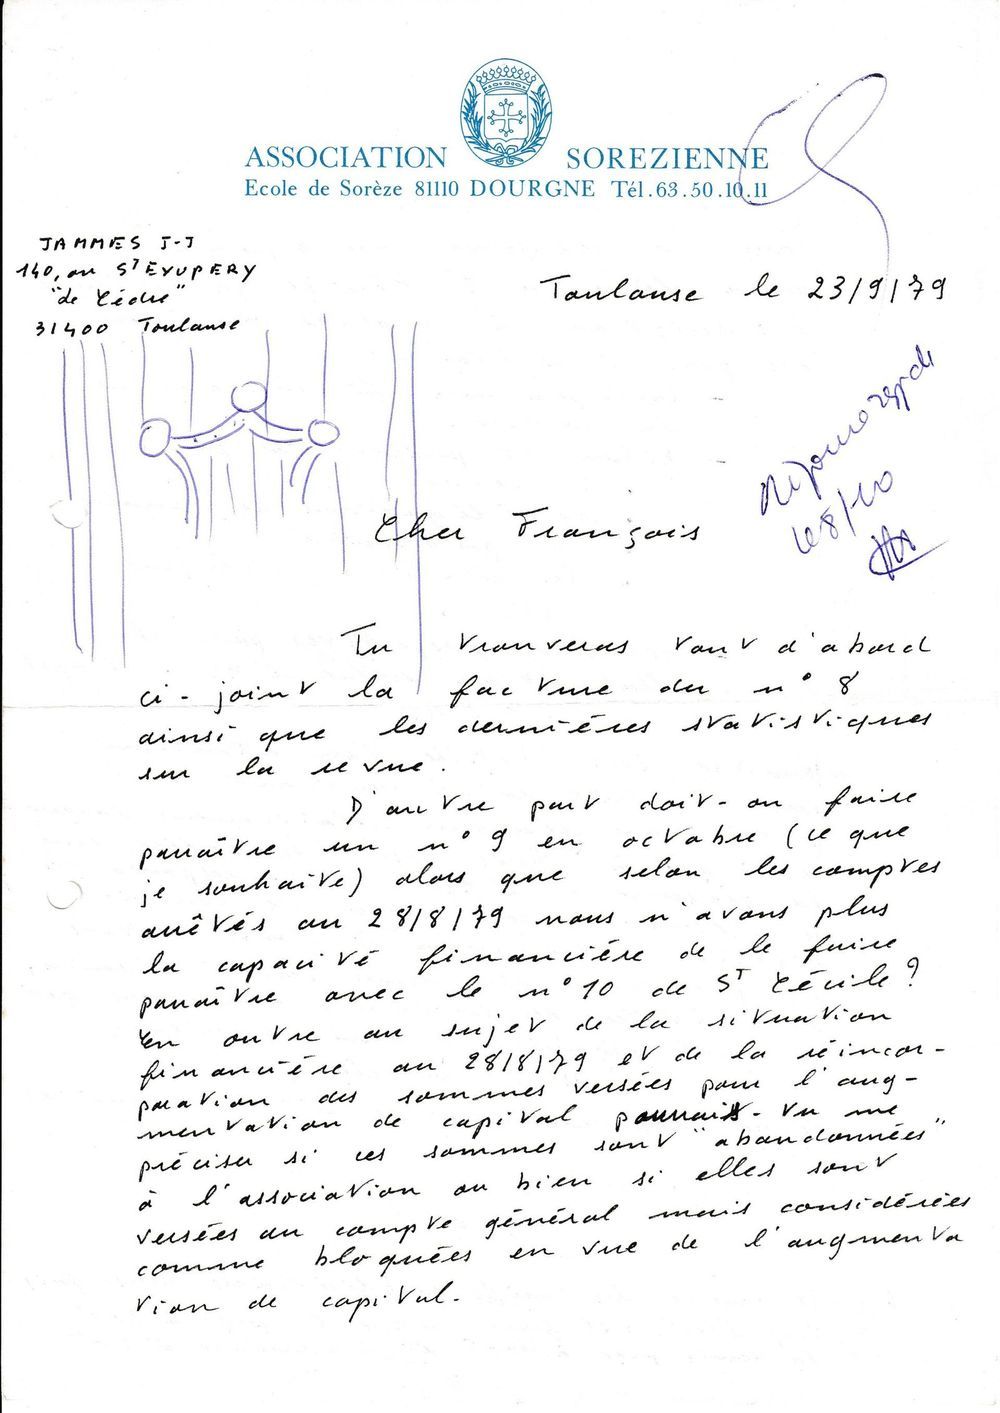 ASSOCIATION SOREZIENNE
Ecole de Sorèze 81110 DOURGNE Tél.63.50.10.11
JAMMES J-J
140, av ST EXUPERY
"Le Cèdre"
31400 Toulouse
Toulouse le 23/9/79
le 8/10
Cher François
Tu trouveras tout d'abord
ci-joint la facture du n° 8
ainsi que les dernières statistiques
sur la revue.
D'autre part doit-on faire
paraître un n° 9 en octobre (ce que
je souhaite) alors que selon les comptes
arrêtés au 28/8/79 nous n'avons plus
la capacité financière de le faire
paraître avec le n° 10 de ST Cécile?
En outre au sujet de la situation
financière au 28/8/79 et de la réincor-
poration des sommes versées pour l'aug-
mentation de capital pourrais-tu me
préciser si ces sommes sont "abandonnées"
à l'association ou bien si elles sont
versées au compte général mais considérées
comme bloquées en vue de l'augmenta
tion de capital.